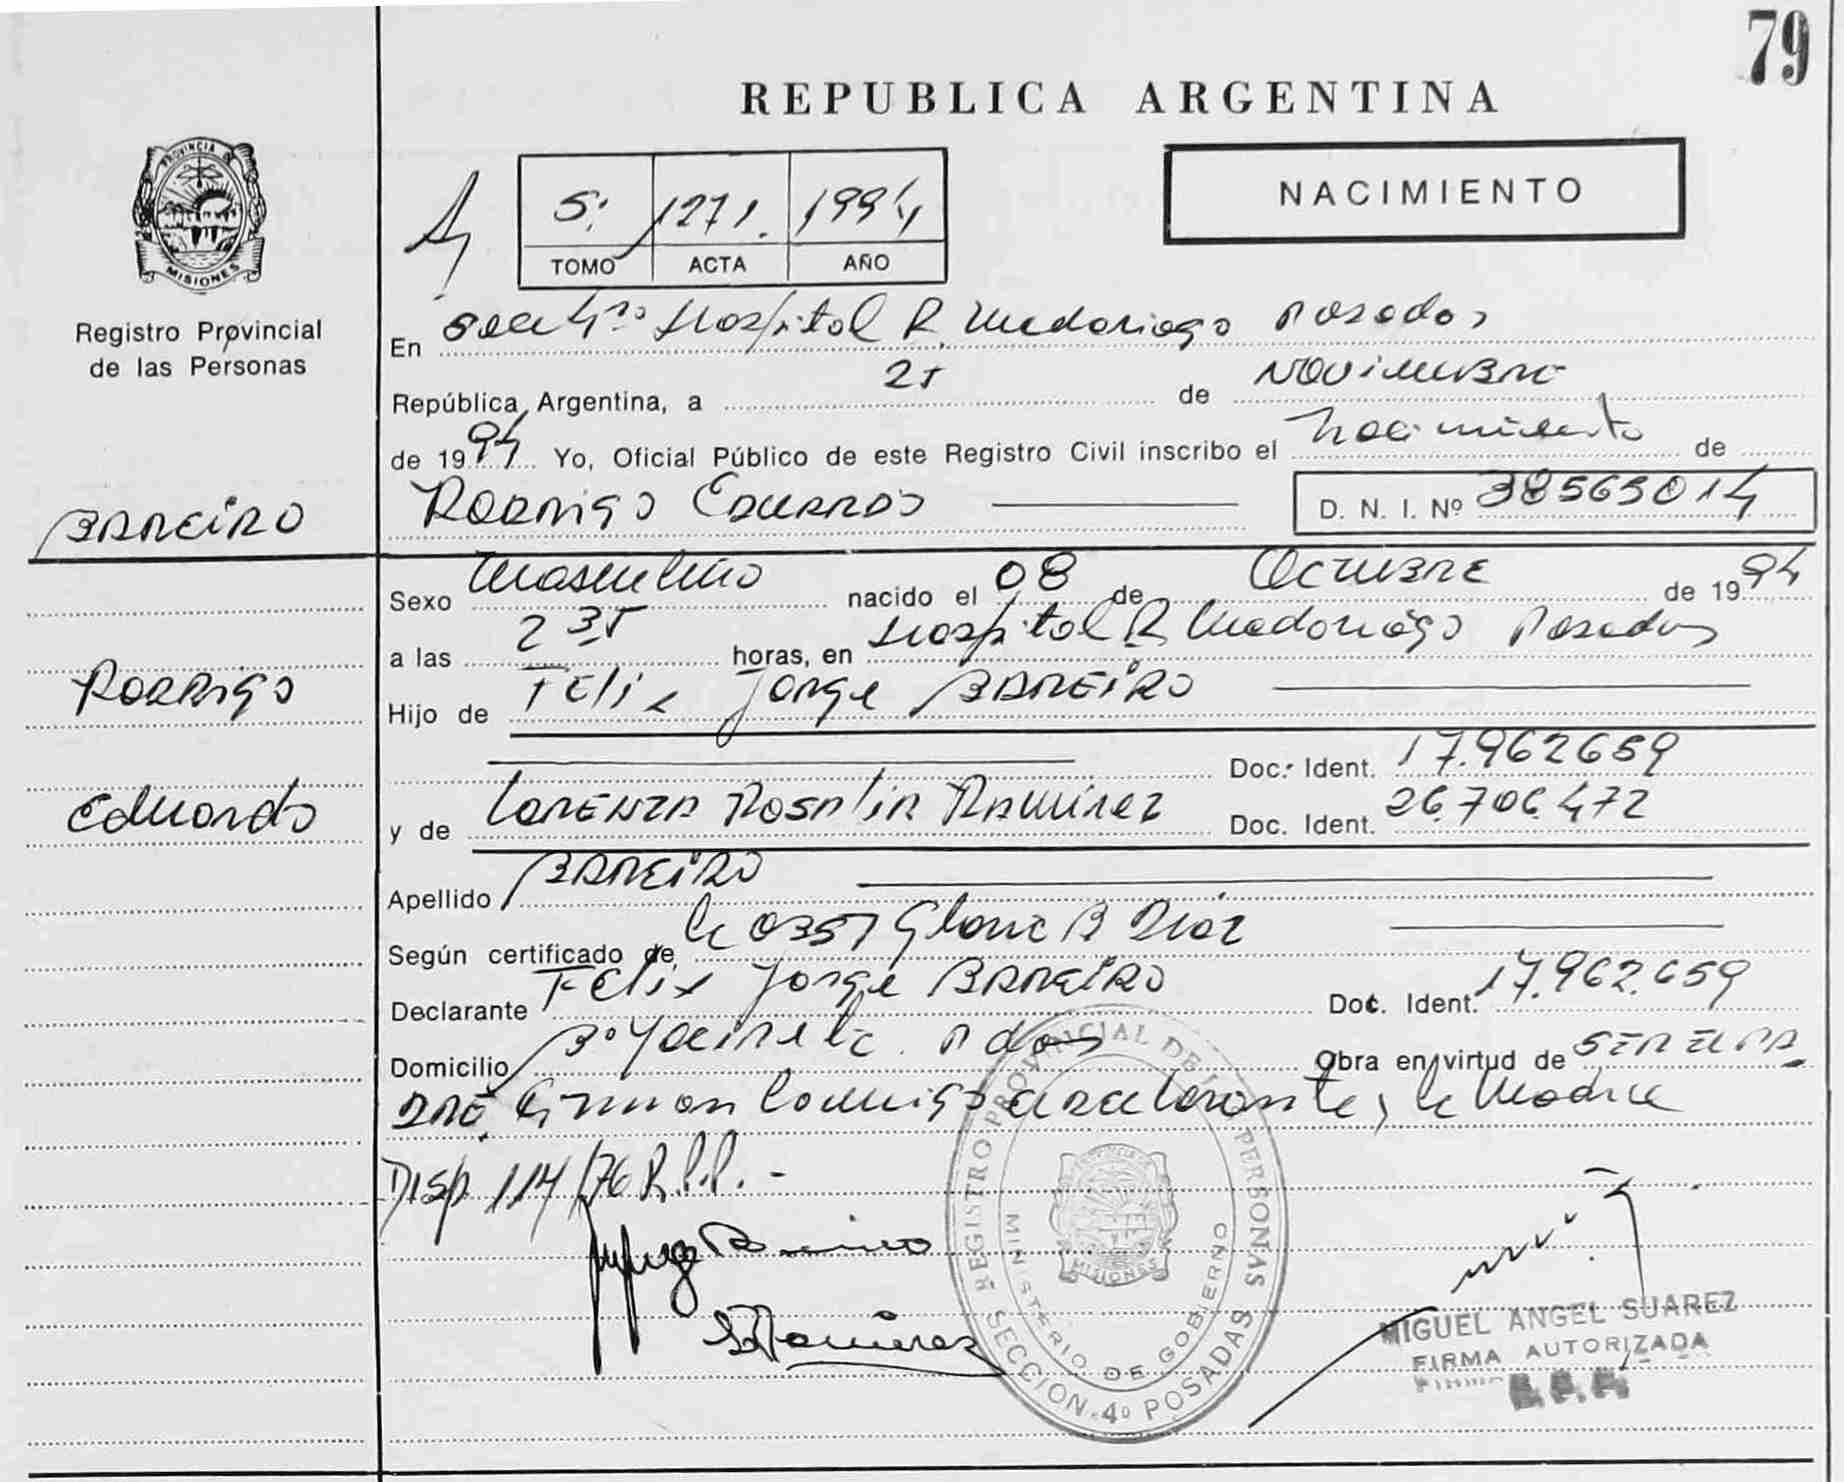 79
REPUBLICA ARGENTINA
NACIMIENTO
PROVINCIA DE
MISIONES
Registro Provincial
de las Personas
5: 1271. 1994
TOMO ACTA AÑO
En Hospital R. Madariaga Posadas
República Argentina, a 25 de NOVIEMBRE
de 1994 Yo, Oficial Público de este Registro Civil inscribo el Nacimiento de
BAREIRO
RODRIGO EDUARDO D. N. I. Nº 38565014
Sexo Masculino nacido el 08 de OCTUBRE de 1994
a las 2 35 horas, en Hospital R. Madariaga Posadas
Rodrigo
Hijo de Felix Jorge BAREIRO
Doc. Ident. 17.962659
Eduardo
y de LORENZA ROSALIA RAMIREZ Doc. Ident. 26.706.472
Apellido BAREIRO
Según certificado de Diaz
Declarante Felix Jorge BAREIRO Doc. Ident. 17.962.659
Domicilio Bº Yacireta Pdas Obra en virtud de
Firman Conmigo declarante y la Madre
Disp. 114/76 R.P.P. -
REGISTRO PROVINCIAL DE LAS PERSONAS
MINISTERIO DE GOBIERNO
MISIONES
SECCION 4º POSADAS
MIGUEL ANGEL SUAREZ
FIRMA AUTORIZADA